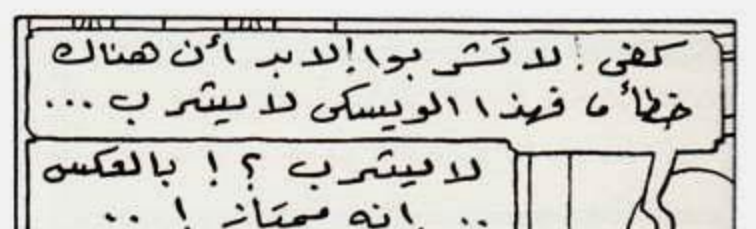 كفى! لا تشربوا! لابد أن هناك
خطأ ما فهذا الويسكى لا يشرب ...
لا يشرب ؟ ! بالعكس
.. انه ممتاز ! ..